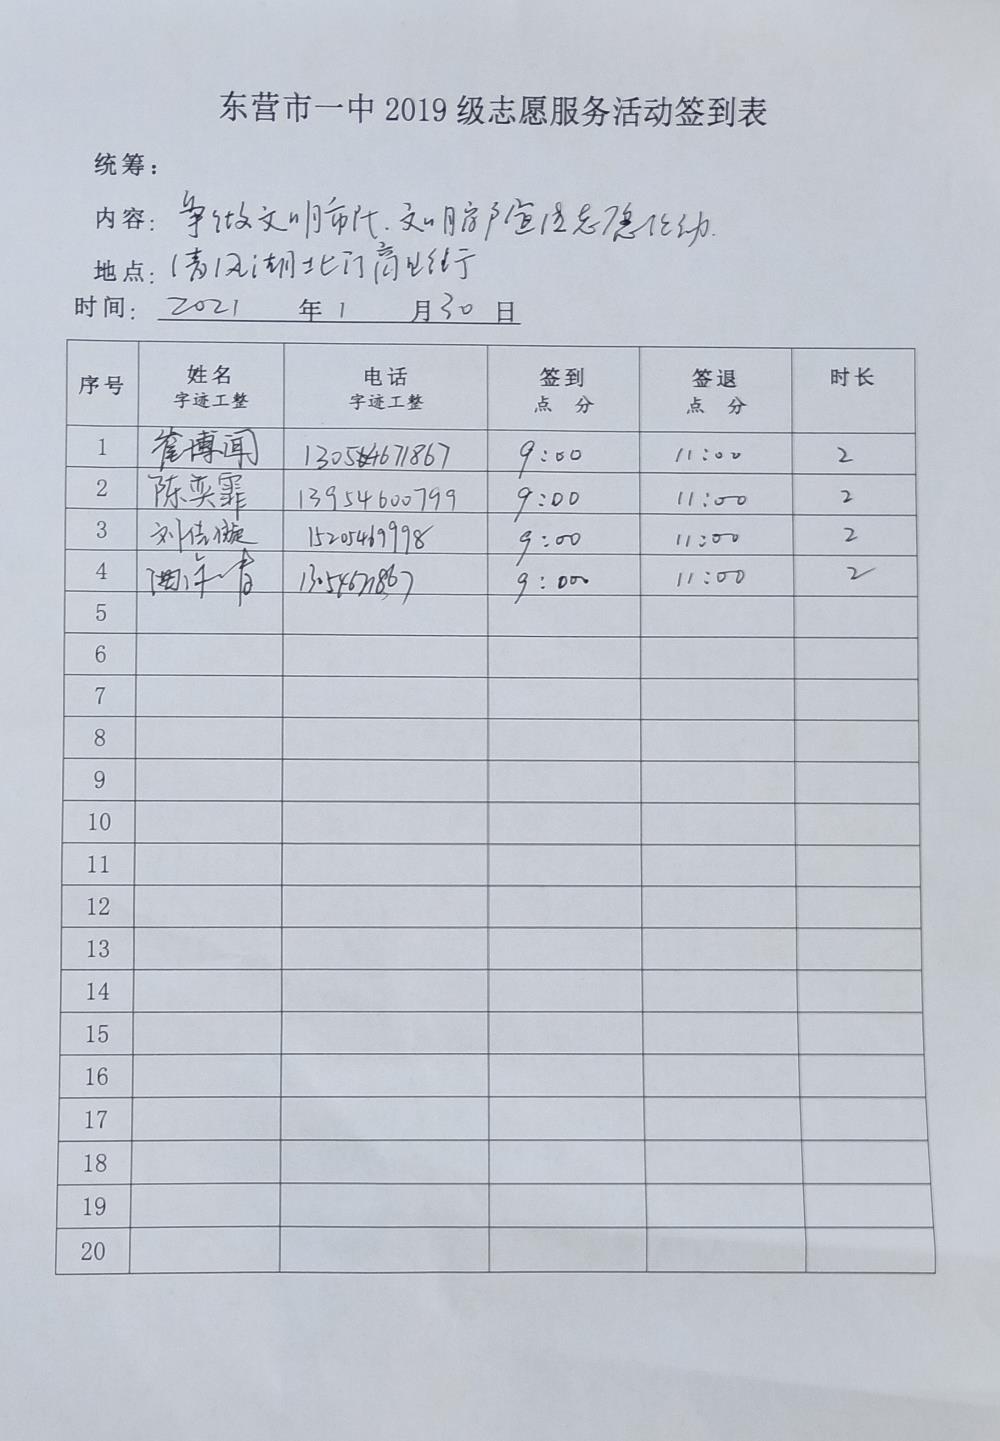 东营市一中 2019 级志愿服务活动签到表
统筹：
内容： 争做文明市民、文明房户宣传志愿活动.
地点： 清风湖北门商业街
时间： 2021 年 1 月 30 日
序号 姓名 字迹工整 电话 字迹工整 签到 点 分 签退 点 分 时长
1 崔博闻 13054671867 9:00 11:00 2
2 陈奕霏 13954600799 9:00 11:00 2
3 刘佶璇 15205469998 9:00 11:00 2
4 13054671867 9:00 11:00 2
5
6
7
8
9
10
11
12
13
14
15
16
17
18
19
20